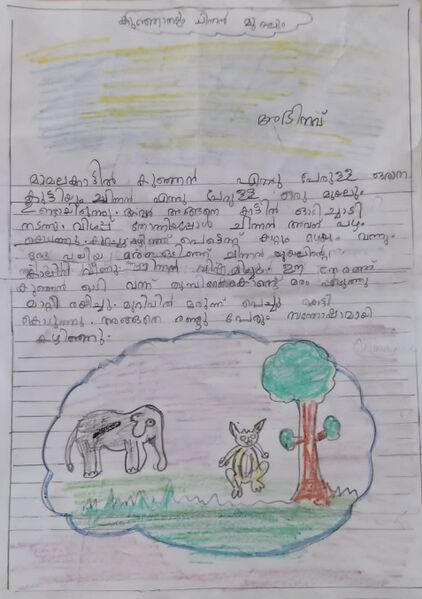 കുഞ്ഞനും ചിന്നൻ മുയലും
അഭിനവ്
മാമലകാട്ടിൽ കുഞ്ഞൻ എന്നു പേരുള്ള ഒരാന
കുട്ടിയും ചിന്നൻ എന്നു പേരുള്ള ഒരു മുയലും
ഉണ്ടായിരുന്നു. അവർ അങ്ങനെ കാട്ടിൽ ഓടിച്ചാടി
നടന്നു. വിശപ്പ് തോന്നിയപ്പോൾ ചിന്നൻ അവന് പഴം
പെട്ടെന്ന് കാറ്റും മഴയും വന്നും.
ഒരു വലിയ ചിന്നൻ മുയലിന്റെ
കാലിൽ വീണു. ചിന്നൻ ഈ നേരത്ത്
കുഞ്ഞൻ ഓടി വന്ന് തുമ്പിക്കൈകൊണ്ട് മരം എടുത്തു
മാറ്റി രക്ഷിച്ചു. മുറിവിൽ മരുന്ന് വെച്ചു കെട്ടി
കൊടുത്തു. അങ്ങനെ രണ്ടു പേരും സന്തോഷമായി
കഴിഞ്ഞു.